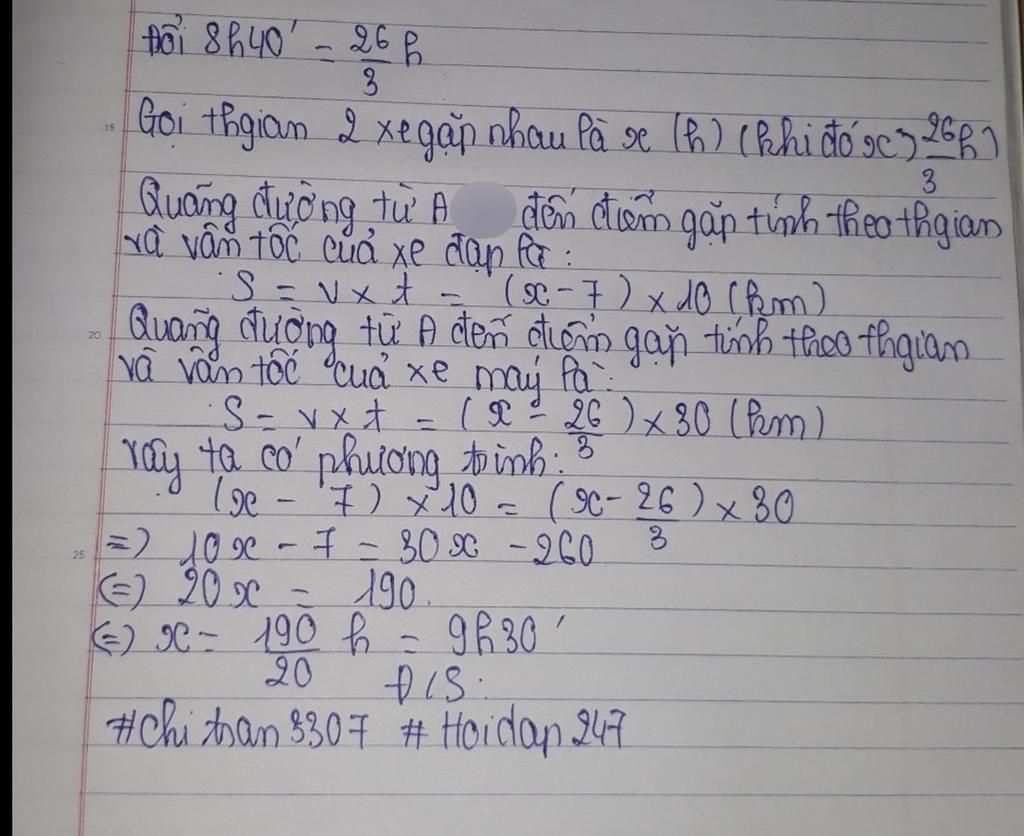 Đổi 8h40' = 26/3 h
15
Gọi thgian 2 xe gặp nhau là x (h) (khi đó x > 26/3 h)
Quãng đường từ A đến điểm gặp tính theo thgian
và vận tốc của xe đạp là:
S = v x t = (x - 7) x 10 (km)
20
Quãng đường từ A đến điểm gặp tính theo thgian
và vận tốc của xe máy là:
S = v x t = (x - 26/3) x 30 (km)
vậy ta có phương trình:
(x - 7) x 10 = (x - 26/3) x 30
25
=) 10x - 7 = 30x - 260
(=) 20x = 190.
(=) x = 190/20 h = 9h30'
Đ/S:
#Chi tran 3307 # Hoidap 247